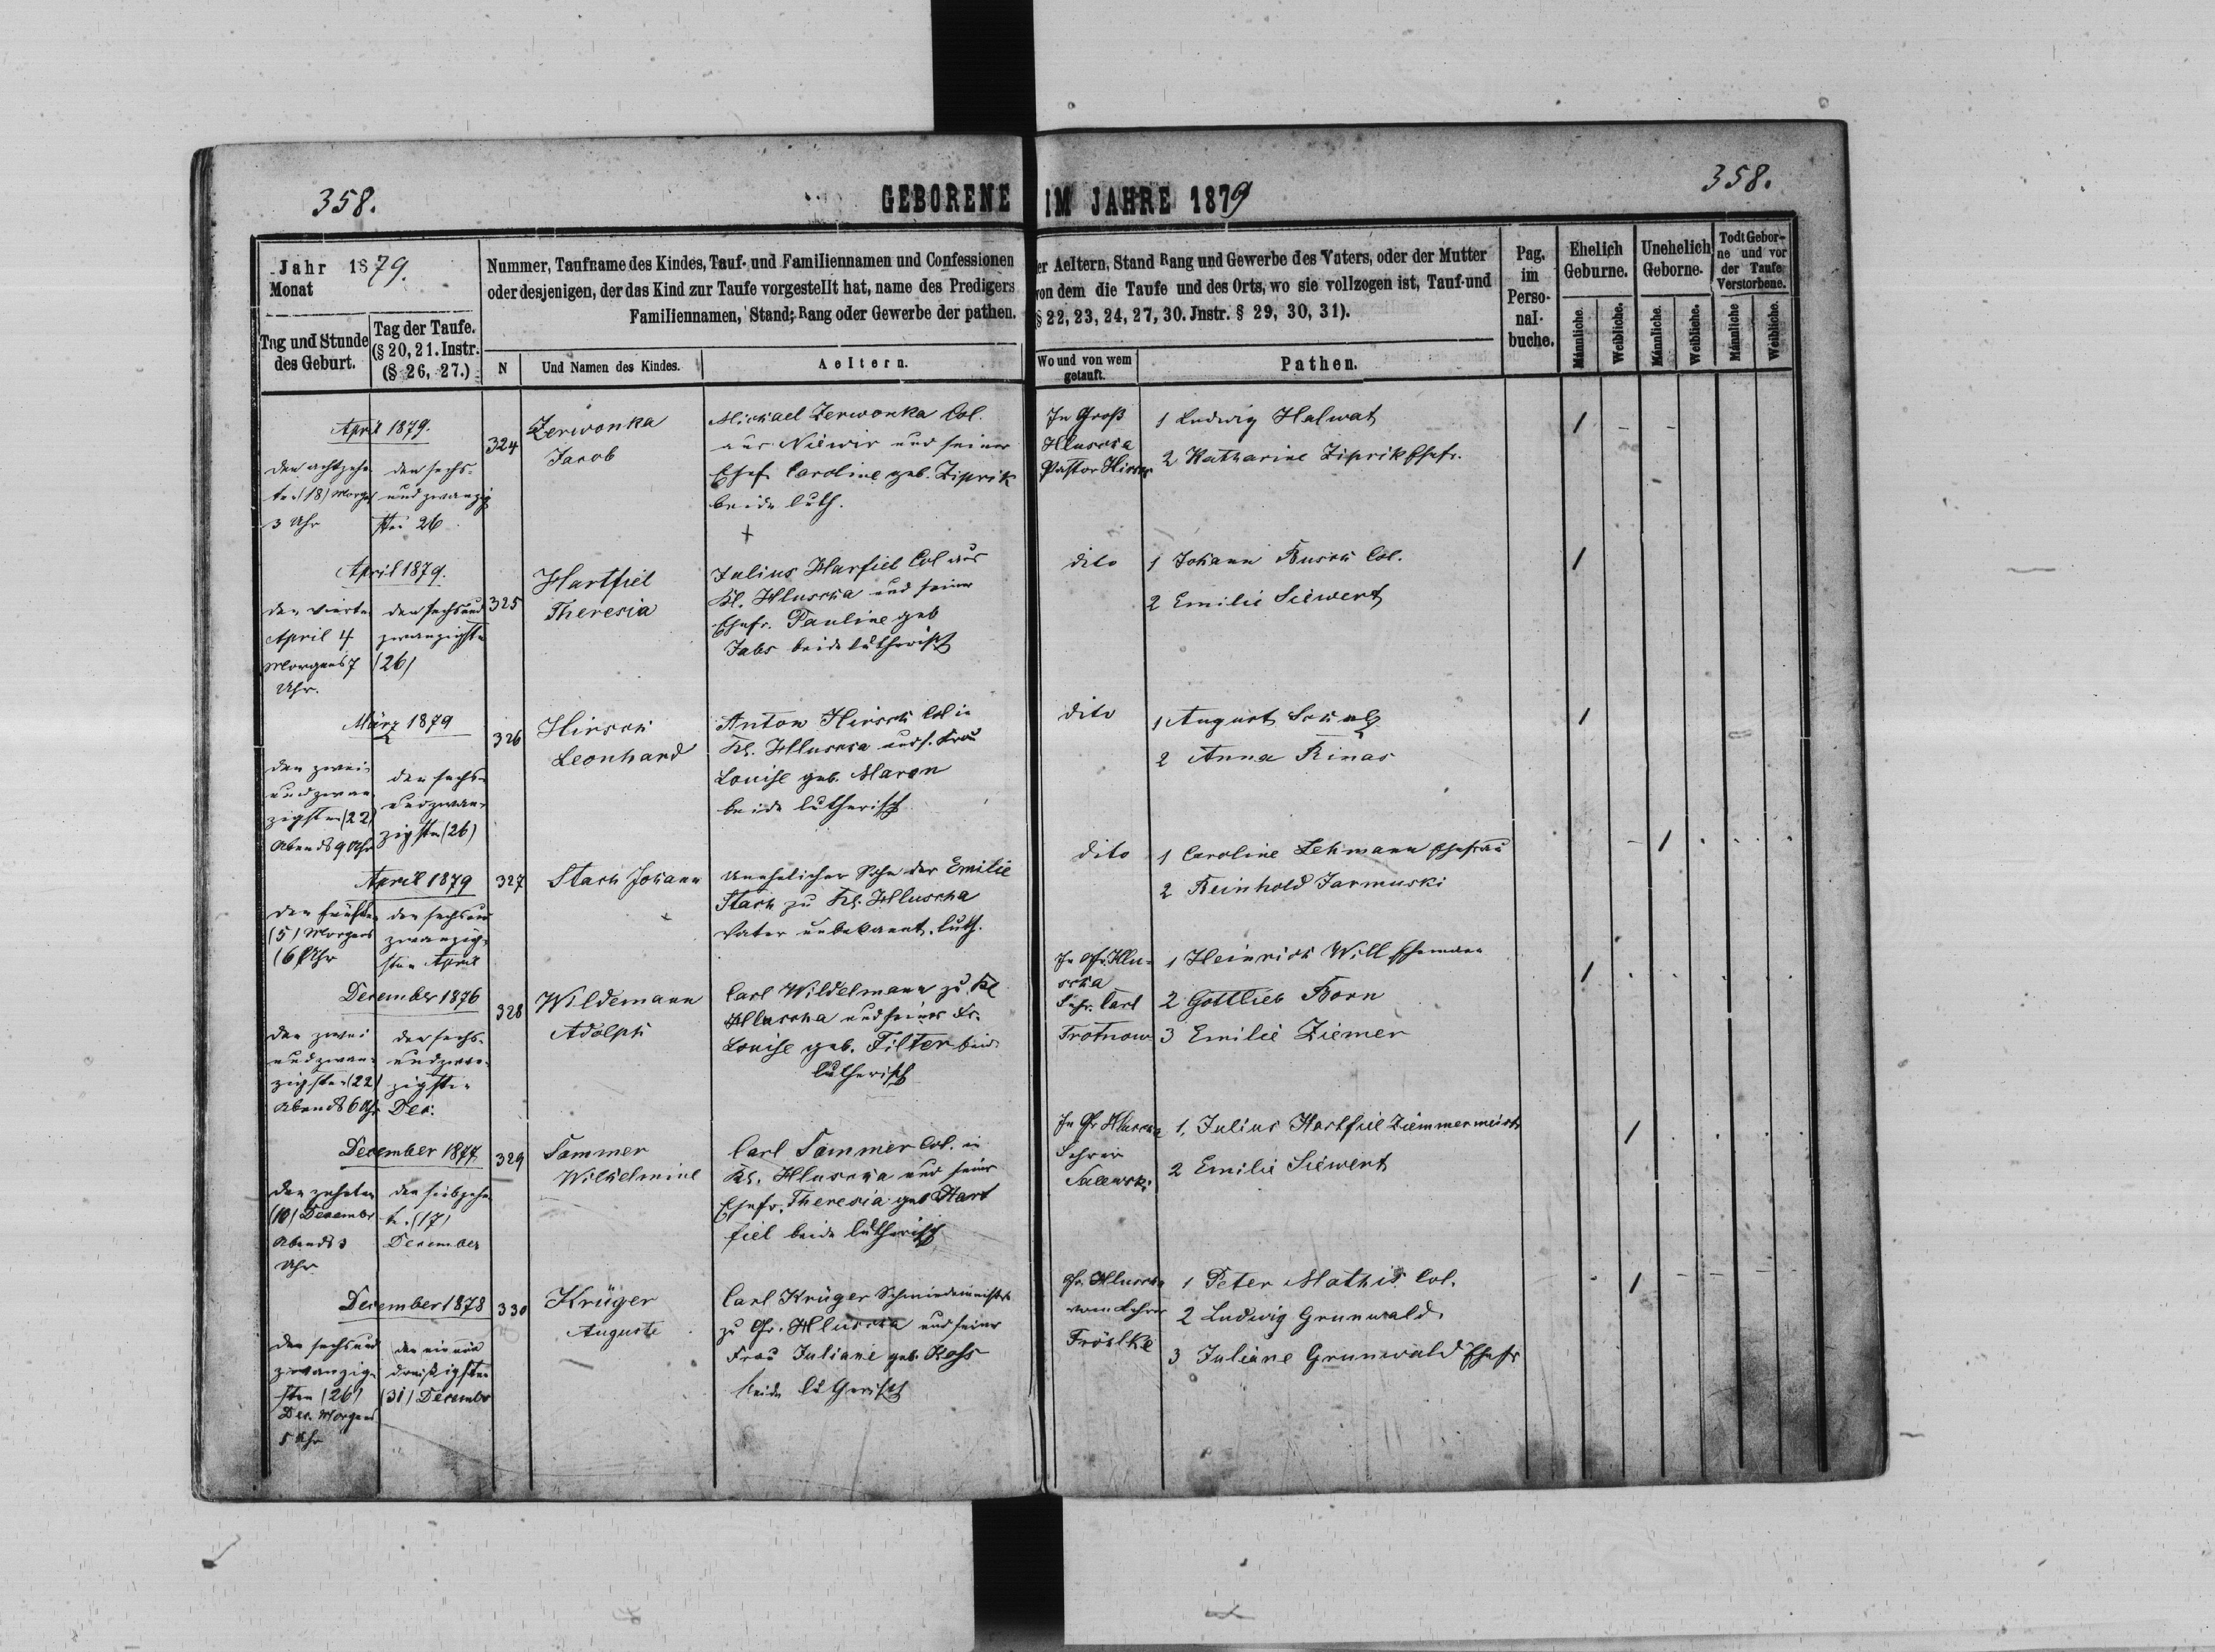 358.
GEBORENE IM JAHRE 1879
358.
Jahr 1879.
Monat
Tag und Stunde des Geburt.
Tag der Taufe. (§ 20, 21. Instr. (§ 26, 27.)
Nummer, Taufname des Kindes, Tauf- und Familiennamen und Confessionen
oder desjenigen, der das Kind zur Taufe vorgestellt hat, name des Predigers
Familiennamen, Stand; Rang oder Gewerbe der pathen.
N
Und Namen des Kindes.
Aeltern.
er Aeltern, Stand Rang und Gewerbe des Vaters, oder der Mutter
von dem die Taufe und des Orts, wo sie vollzogen ist, Tauf-und
§ 22, 23, 24, 27, 30. Jnstr. § 29, 30, 31).
Wo und von wem getauft.
Pathen.
Pag. im Perso- nal- buche.
Ehelich Geburne.
Unehelich Geborne.
Todt Gebor- ne und vor der Taufe Verstorbene.
Männliche.
Weibliche.
Männliche.
Weibliche.
Männliche
Weibliche.
April 1879.
den achtzehn
ten (18) Morgens
3 Uhr
den sechs-
und zwanzig
sten 26
324
Zerwonka
Jacob
Michael Zerwonka Col.
aus Niewir und seiner
Ehefr. Caroline geb. Ziprik
beide luth.
In Groß
Hluscha
Pastor
1 Ludwig Halwat
2 Katharine Ziprik Ehefr.
1
April 1879.
den vierten
April 4
Morgens 7
Uhr.
den sechs und
zwanzigsten
(26)
325
Hartfiel
Theresia
Julius Harfiel Col aus
Kl. Hluscha und seiner
Ehefr. Pauline geb
Jabs beide lutherisch
dito
1 Johann Busch Col.
2 Emilie Siewert
1
März 1879
den zwei-
und zwan-
zigsten (22)
Abends 9 Uhr
den sechs-
und zwan-
zigsten (26)
326
Hirsch
Leonhard
Anton Hirsch Col in
Kl. Hluscha und s. Frau
Louise geb. Maron
beide lutherisch
dito
1 August
2 Anna Rinas
1
April 1879
den fünften
(5) Morgens
(6) Uhr
den sechs und
zwanzig-
sten April
327
Stach Johann
Unehelicher Sohn der Emilie
Stach zu Kl. Hluscha
Vater unbekannt. luth.
dito
1 Caroline Lehmann Ehefrau
2 Reinhold Jarmuski
1
December 1876
den zwei
und zwan-
zigsten (22)
Abends 6 Uhr
den sechs-
und zwan-
zigsten
Dec.
328
Wildemann
Adolph
Carl Wildelmann zu Kl
Hluscha und seiner Fr.
Louise geb. Filter beide
lutherisch
In Gr. Hlu-
scha
Lehr. Carl
Trotnow
1 Heinrich Will Ehemann
2 Gottlieb Born
3 Emilie Ziemer
1
December 1877
den zehnten
(10) December
Abends 3
Uhr
den siebzehn
t. (17)
December
329
Sammer
Wilhelmine
Carl Sammer Col. in
Kl. Hluscha und seiner
Ehefr. Theresia geb Hart
fiel beide lutherisch
In Gr Hluscha
Lehrer
Salewski
1, Julius Hartfiel Zimmermeister
2 Emilie Siewert
1
December 1878
den sechs und
zwanzig-
sten (26)
Dec. Morgens
5 Uhr
den ein und
dreißigsten
(31) December
330
Krüger
Auguste
Carl Krüger Schmiedemeister
zu Gr. Hluscha und seiner
Frau Juliane geb. Ross
beide lutherisch
Gr. Hluscha
vom Lehrer
Fröslke
1 Peter Mathis Col.
2 Ludwig Grunwald
3 Juliane Grunwald Ehefr
1